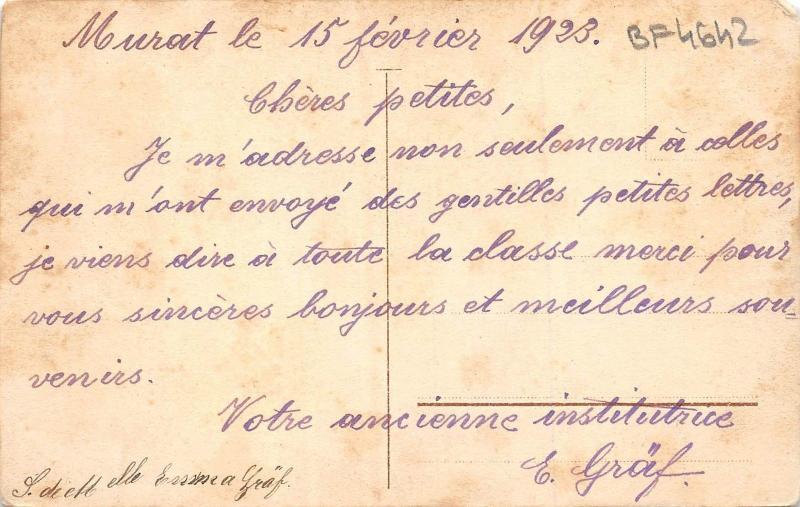 Murat le 15 février 1923. BF4642
Chères petites,
Je m'adresse non seulement à celles
qui m'ont envoyé des gentilles petites lettres,
je viens dire à toute la classe merci pour
vous sincères bonjours et meilleurs sou=
venirs.
Votre ancienne institutrice
E. Gräf.
elle Emma Gräf.